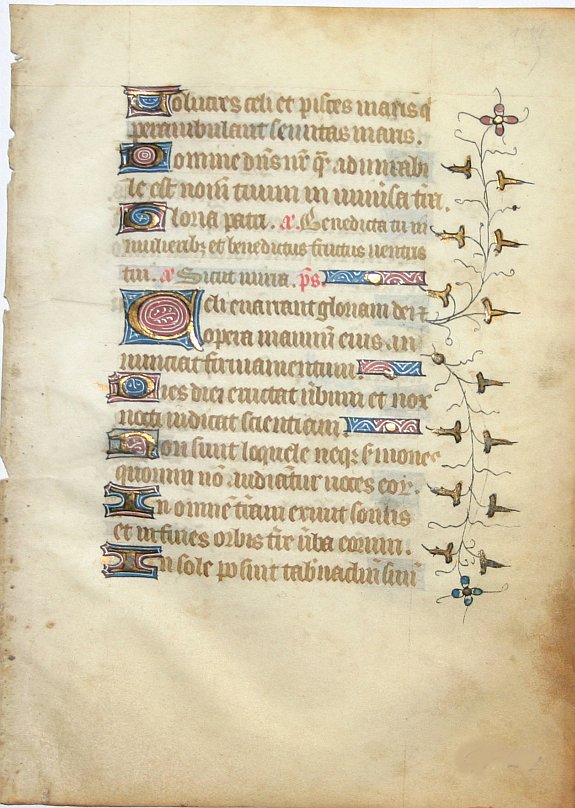 Volucres celi et pisces maris q̄
perambulant semitas maris.
Domine dn̄s nr̄ q̄ admirabi
le est nom̄ tuum in univ̄sa tr̄a.
Gloria patri. a͞. Benedicta tu in
mulierib; et benedictus fructus ventris
tui. a͞ Sicut mirra. p̄s.
Celi enarrant gloriam dei ⁊
opera manuum eius an
nunciat firmamentum.
Dies diei eructat v̄bum et nox
nocti indicat scientiam.
Non sunt loquele neq; s̄mones
quorum nō audiāntur voces eoꝝ.
In omnē tr̄am exivit sonus
et in fines orbis tr̄e v̄ba eorum.
In sole posuit tab̄naclm̄ suū